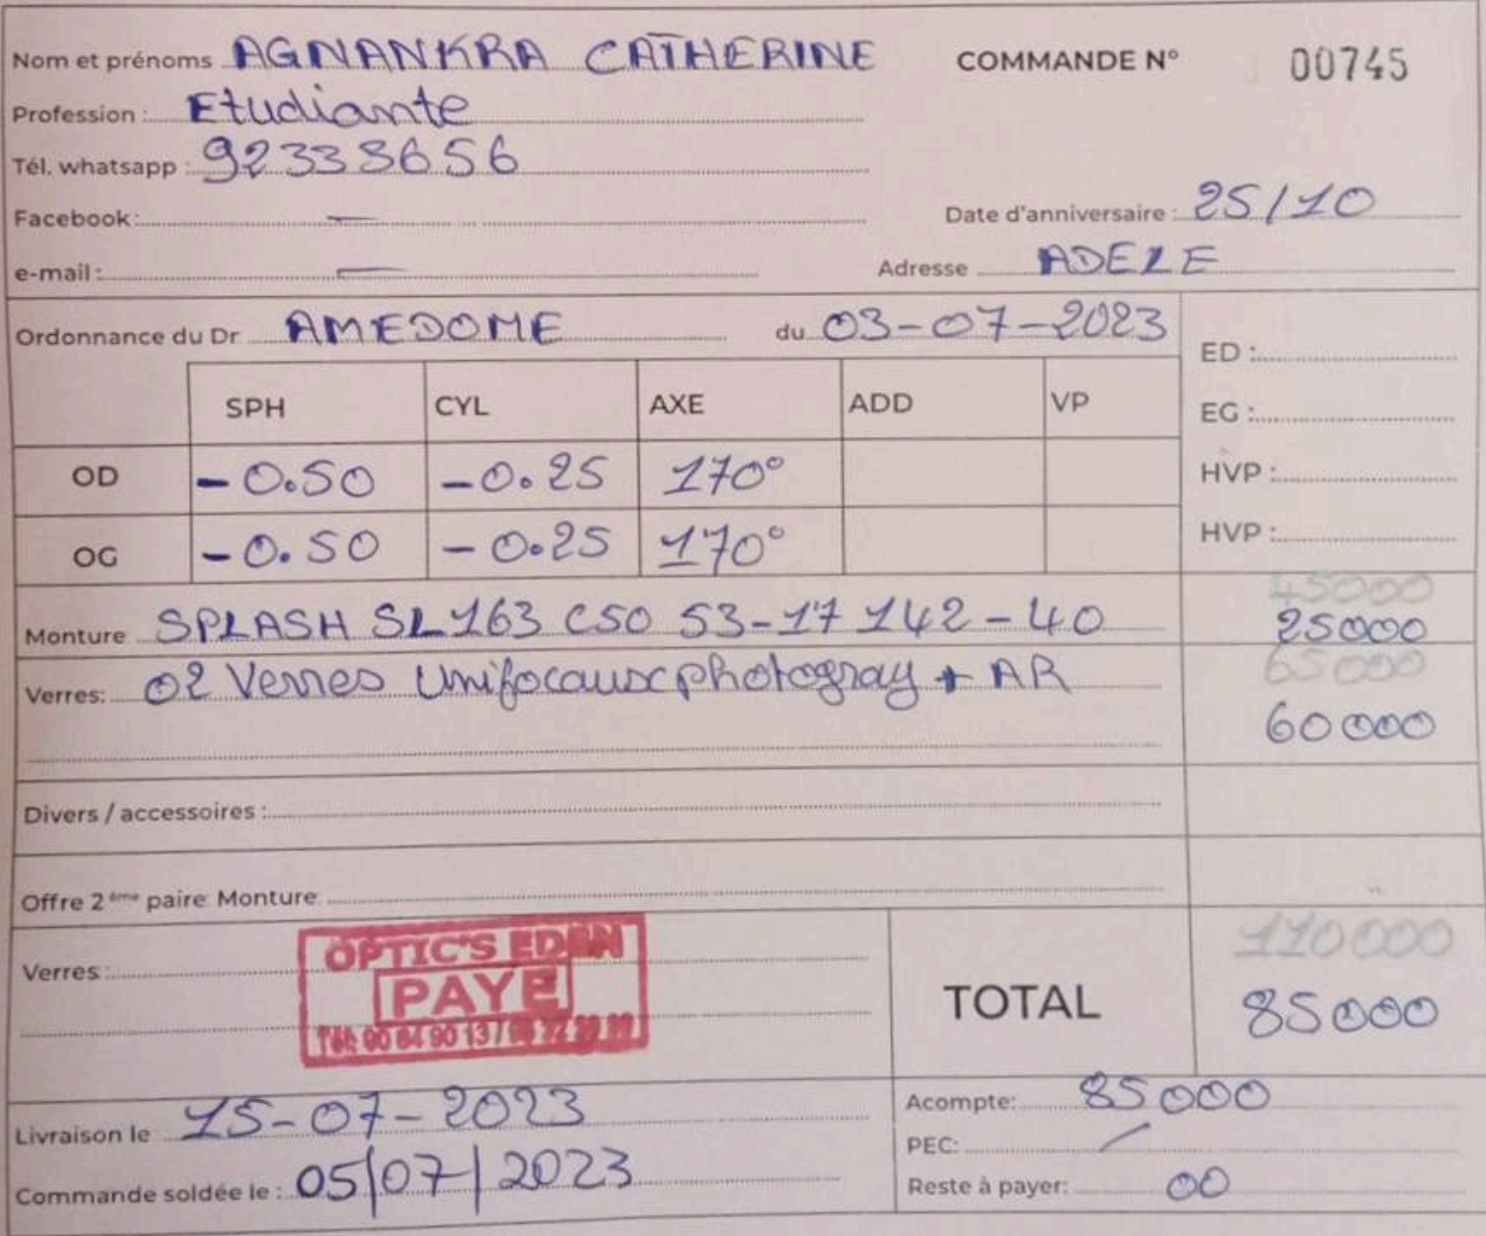 Nom et prénoms AGNANKRA CATHERINE COMMANDE N° 00745
Profession : Etudiante
Tél. whatsapp : 92333656
Facebook : — Date d'anniversaire : 25/10
e-mail : — Adresse ADELE
Ordonnance du Dr AMEDOME du 03-07-2023
ED :
SPH CYL AXE ADD VP
EG :
OD -0.50 -0.25 170°
HVP :
OG -0.50 -0.25 170°
HVP :
45000
Monture SPLASH SL163 C50 53-17 142-40 25000
65000
Verres: 02 Verres Unifocaux photogray + AR
60000
Divers / accessoires :
Offre 2ème paire Monture
110000
OPTIC'S EDEN
Verres :
PAYE
TOTAL 85000
Tél: 90 64 90 13 /
Livraison le 15-07-2023 Acompte: 85000
PEC: /
Commande soldée le : 05/07/2023 Reste à payer: 00